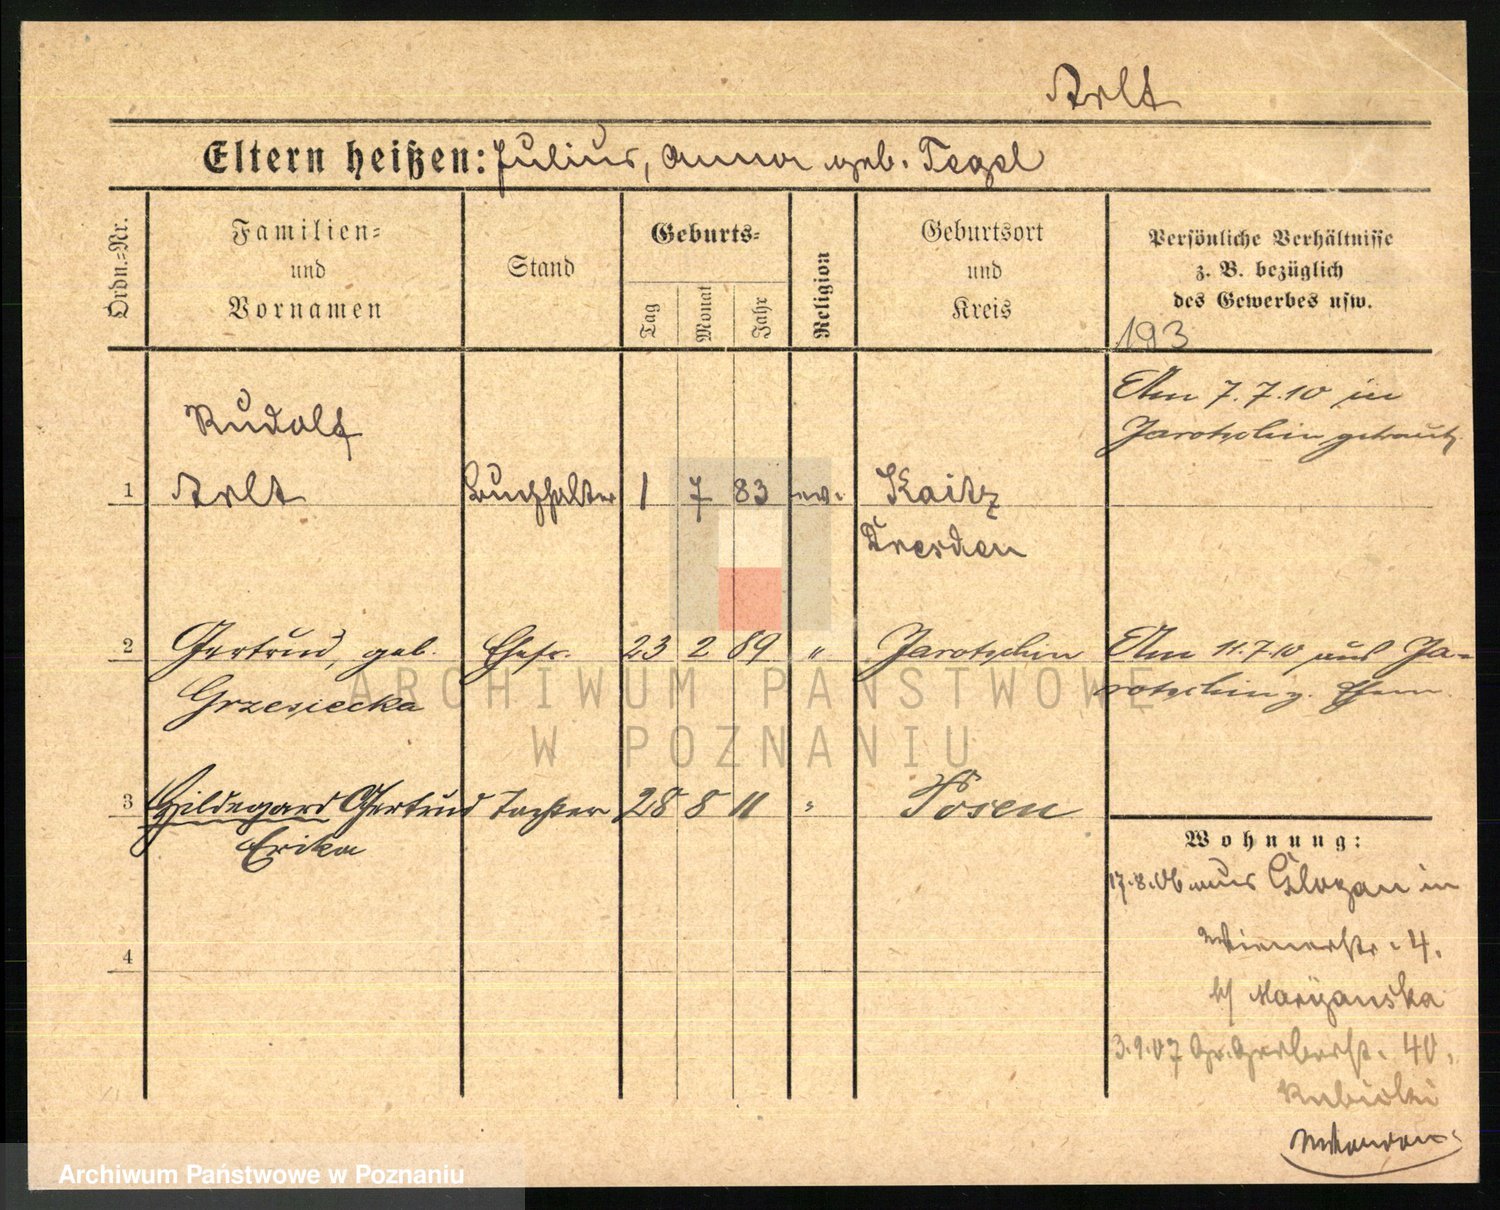 Arlt
Eltern heißen: Julius, Anna geb. Tegel
Ordn.=Nr.
Familien=
und
Vornamen
Stand
Geburts=
Tag
Monat
Jahr
Religion
Geburtsort
und
Kreis
Persönliche Verhältnisse
z. B. bezüglich
des Gewerbes usw.
193
Rudolf
1 Arlt Buchhalter 1 7 83 ev. Kaitz
Dresden
Am 7.7.10 in
Jarotschin getraut.
2 Gertrud, geb. Ehefr. 23 2 89 " Jarotschin
Grzesiecka
Am 11.7.10 aus Ja-
rotschin z. Ehem.
3 Hildegard Gertrud Tochter 28 8 11 " Posen
Erika
4
Wohnung:
17.8.06 aus Glogau in
Wienerstr. 4.
b/ Maryanska
3.9.07 Gr. Gerberstr. 40,
Rubicki
ARCHIWUM PAŃSTWOWE
W POZNANIU
Archiwum Państwowe w Poznaniu